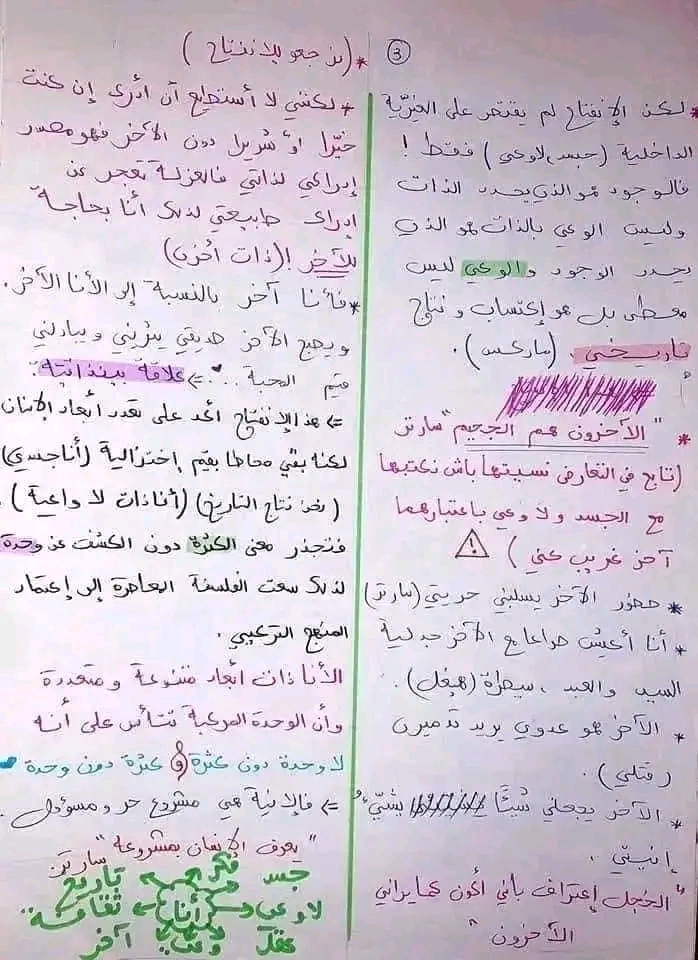 3
* لكن الإنفتاح لم يقتصر على الغيرية
الداخلية (جسد، لاوعي) فقط !
فالوجود هو الذي يحدد الذات
وليس الوعي بالذات هو الذي
يحدد الوجود والوعي ليس
معطى بل هو إكتساب ونتاج
تاريخي. (ماركس).
* "الآخرون هم الجحيم" سارتر
(تابع في التعارض نسيتها باش نكتبها
مع الجسد ولاوعي باعتبارهما
آخر غريب عني) !
* حضور الآخر يسلبني حريتي (سارتر)
* أنا أعيش صراعا مع الآخر جدلية
السيد والعبد، سيطرة (هيغل).
* الآخر هو عدوي يريد تدميري
(قتلي).
* الآخر يجعلني شيئا يشيّء
إنيتي.
"الخجل إعتراف بأني أكون كما يراني
الآخرون"
* (نرجعو للانفتاح)
* لكنني لا أستطيع أن أدرك إن كنت
خيّرا او شريرا دون الآخر فهو مصدر
إدراكي لذاتي فالعزلة تعجز عن
إدراك طبيعتي لذلك أنا بحاجة
للآخر ! (ذات أخرى)
* فأنا آخر بالنسبة إلى الأنا الآخر.
ويصبح الآخر صديقي يثريني ويبادلني
قيم المحبة.. => علاقة بينذاتية.
=> هذا الإنفتاح أكد على تعدد أبعاد الإنسان
لكنه بقي محاطا بقيم إختزالية (أنا جسدي)
(نحن نتاج التاريخ) (أنا ذات لا واعية).
فتجذر معنى الكثرة دون الكشف عن وحدة
لذلك سعت الفلسفة المعاصرة إلى إعتماد
المنهج التركيبي.
الأنا ذات أبعاد متنوعة ومتعددة
وأن الوحدة المركبة تتأسس على أنه
لا وحدة دون كثرة و كثرة دون وحدة
=> فالإنية هي مشروع حر ومسؤول.
"يعرف الإنسان بمشروعه" سارتر
جسد فكر تاريخ
لاوعي أنا ثقافة
عقل وعي آخر